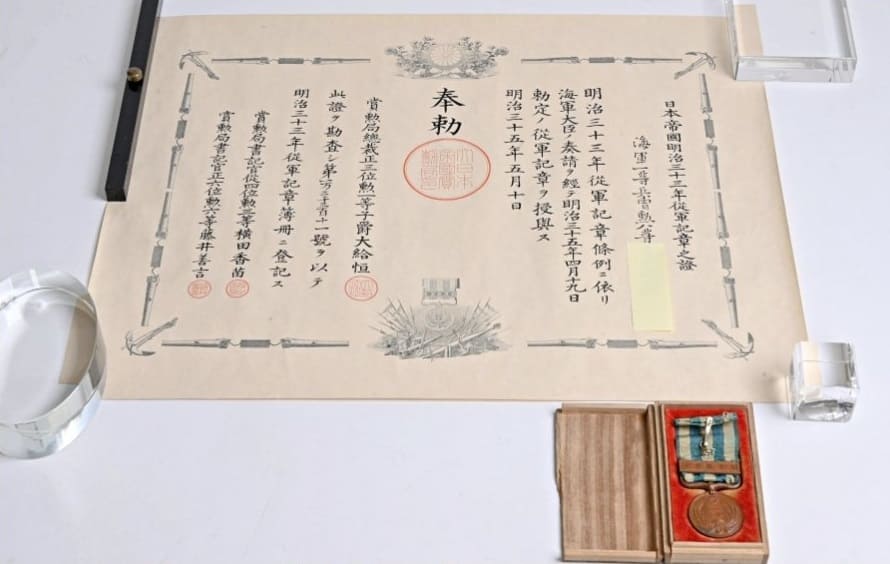 日本帝國明治三十三年從軍記章之證
海軍一等兵曹勲八等
明治三十三年從軍記章條例ニ依リ
海軍大臣ノ奏請ヲ經テ明治三十五年四月十九日
勅定ノ從軍記章ヲ授與ス
明治三十五年五月十日
奉勅
大日本帝國賞勲局印
賞勲局總裁正三位勲一等子爵大給恒
此證ヲ勘査シ第百十一號ヲ以テ
明治三十三年從軍記章簿冊ニ登記ス
賞勲局書記官從四位勲三等横田香苗
賞勲局書記官正六位勲六等藤井善言